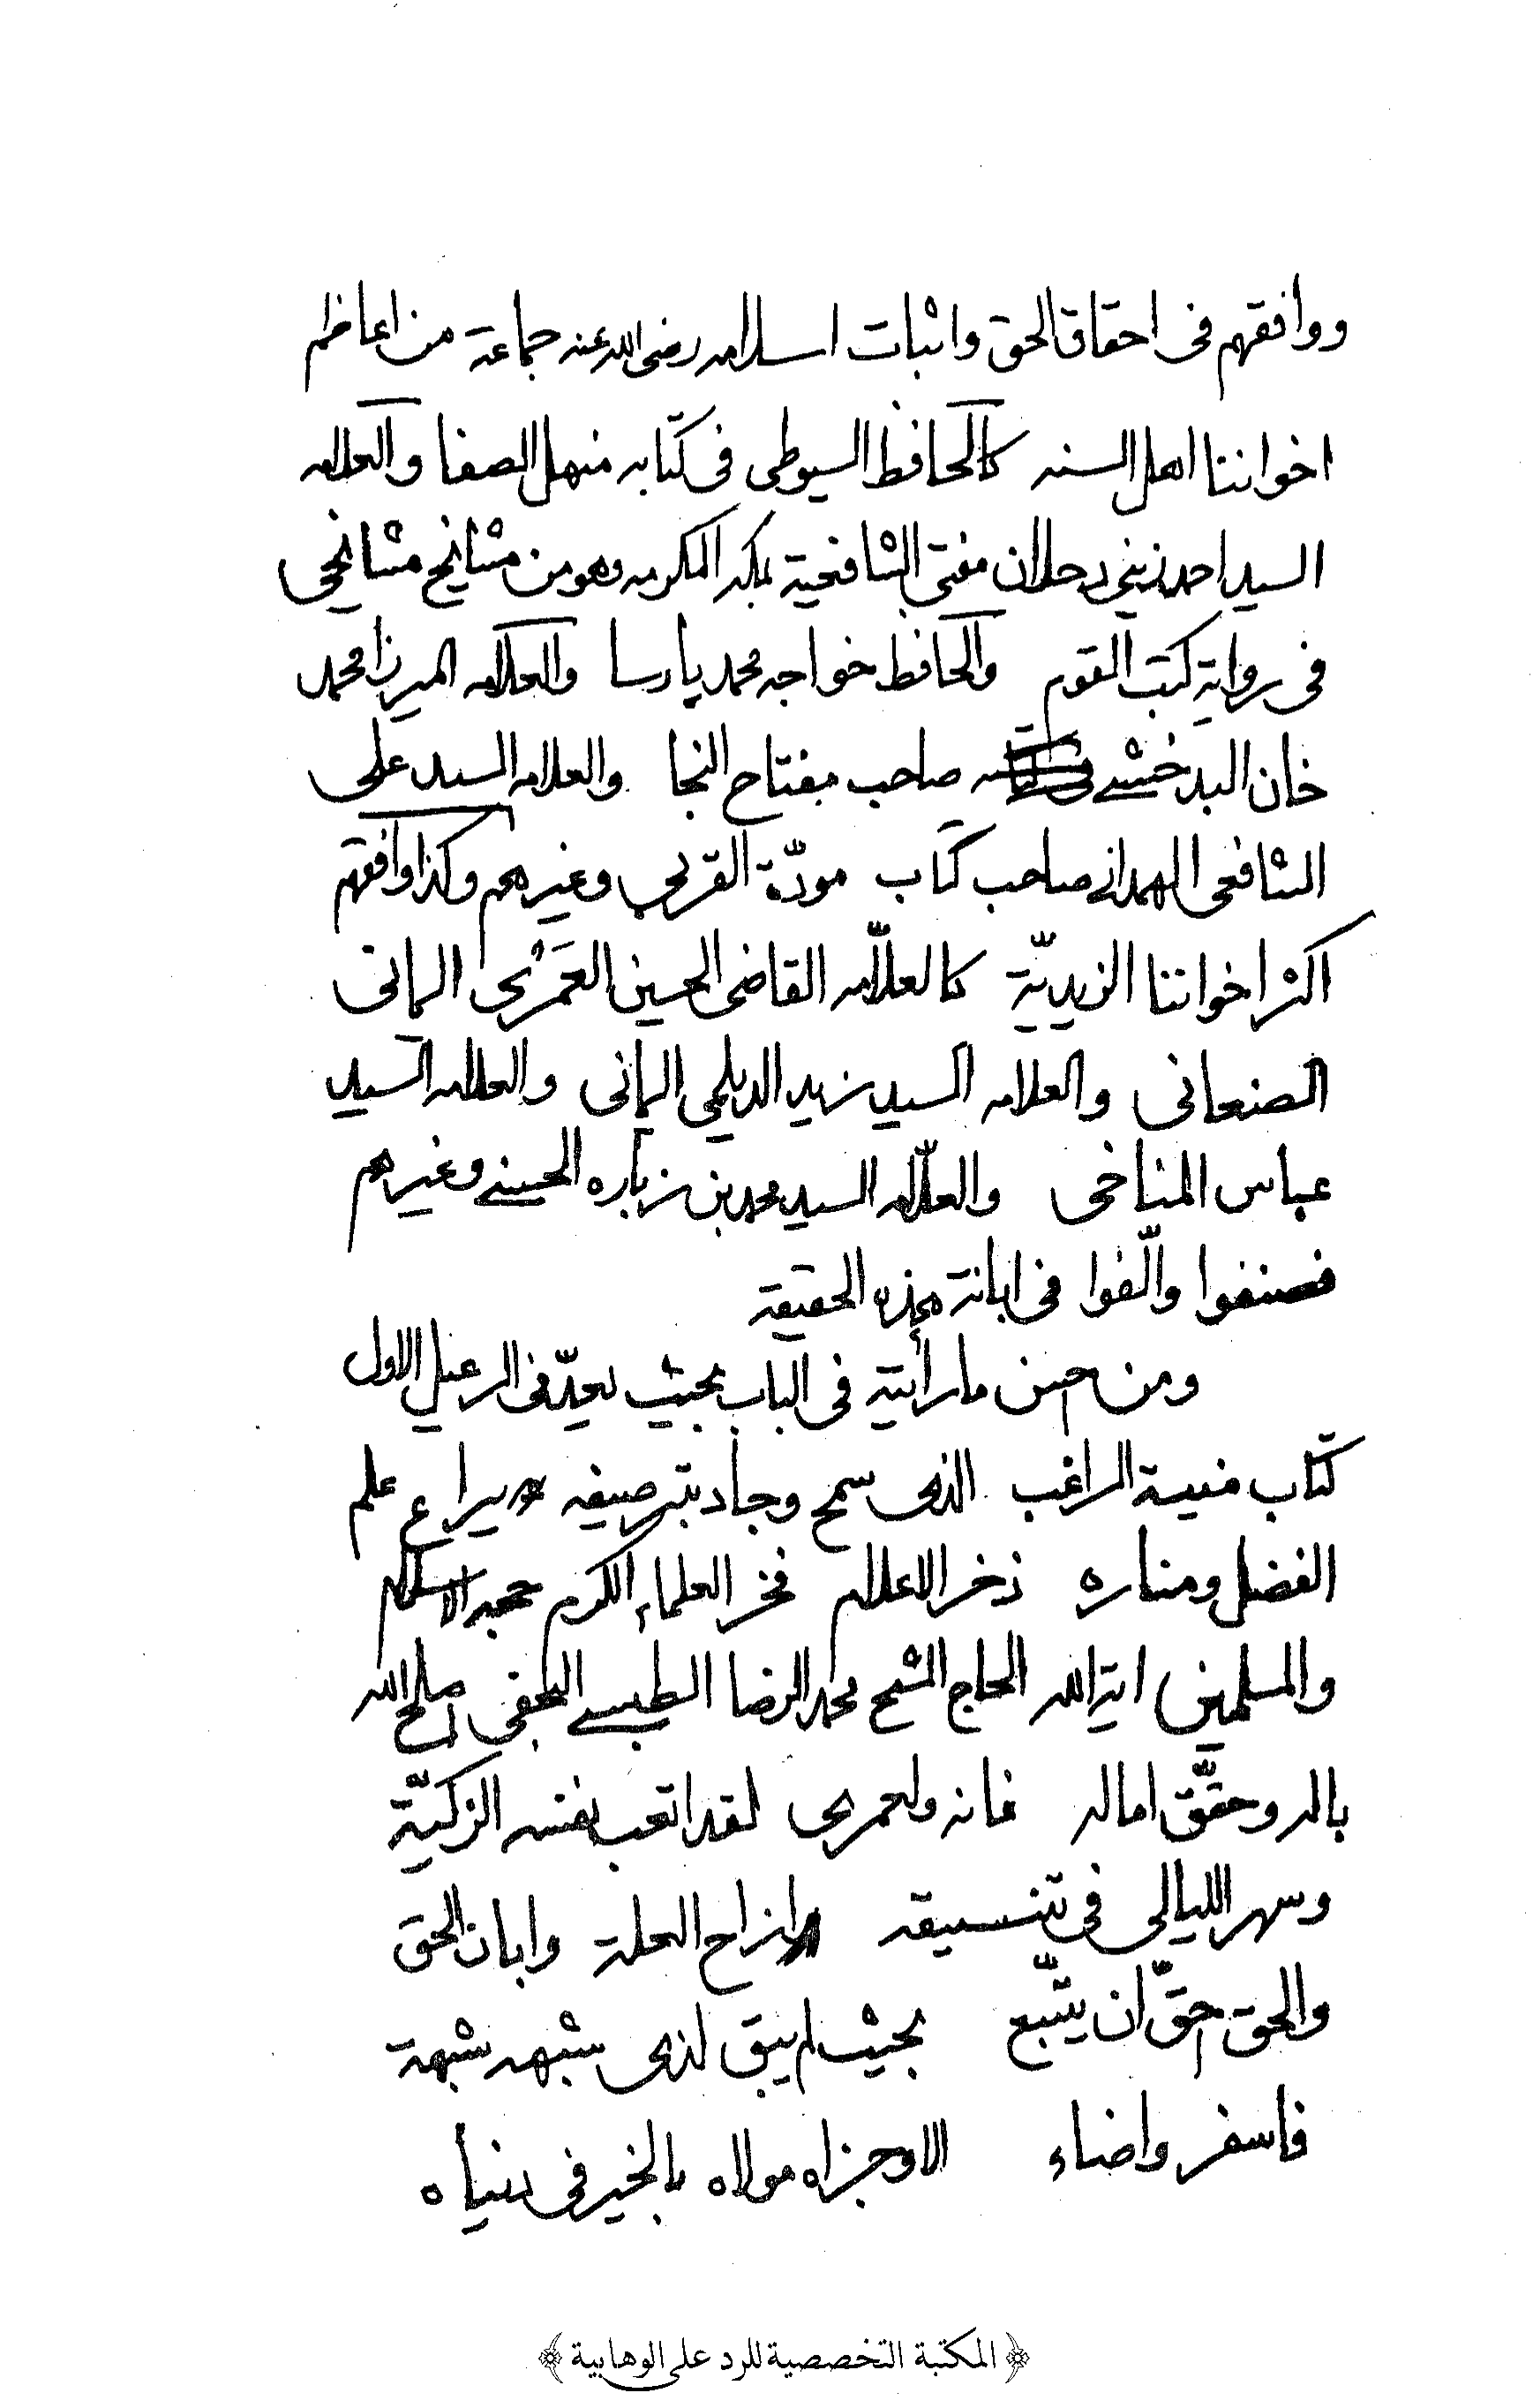 ووافقهم فى احقاق الحق واثبات اسلامه رضى الله عنه جماعة من اعاظم
اخواننا اهل السنه كالحافظ السيوطى فى كتابه منهل الصفا والعلامه
السيد احمد زينى دحلان مفتى الشافعية بمكه المكرمه وهو من مشايخ مشايخى
فى رواية كتب القوم والحافظ خواجه محمد پارسا والعلامه الميرزا محمد
خان البدخشى صاحب مفتاح النجا والعلامه السيد على
الشافعى الهمدانى صاحب كتاب مودّة القربى وغيرهم وكذا وافقهم
اكثر اخواننا الزيديّة كالعلّامه القاضى الحسين العَمْرى اليمانى
الصنعانى والعلامه السيد زيد الديلمى اليمانى والعلامه السيد
عباس المناخى والعلّامه السيد محمد بن زباره الحسنى وغيرهم
فصنفوا والّفوا فى ابانة هذه الحقيقة
ومن احسن ما رأيته فى الباب بحيث يعدّ فى الرعيل الاول
كتاب منية الراغب الذى سمح وجاد بترصيفه يراع علم
الفضل ومناره ذخر الاعلام فخر العلماء الكرم حجه الاسلام
والمسلمين اية الله الحاج الشيخ محمد الرضا الطبسى النجفى اصلح الله
باله وحقّق اماله فانه ولعمرى لقد اتعب نفسه الزكيّة
وسهر الليالى فى تنسيقه وازاح العلة وابان الحق
والحق احقّ ان يتّبع بحيث لم يبق لذى شبهه شبهة
فاسفر واضاء الا وجزاه مولاه بالخير فى دنياه
﴿المكتبة التخصصية للرد على الوهابية﴾